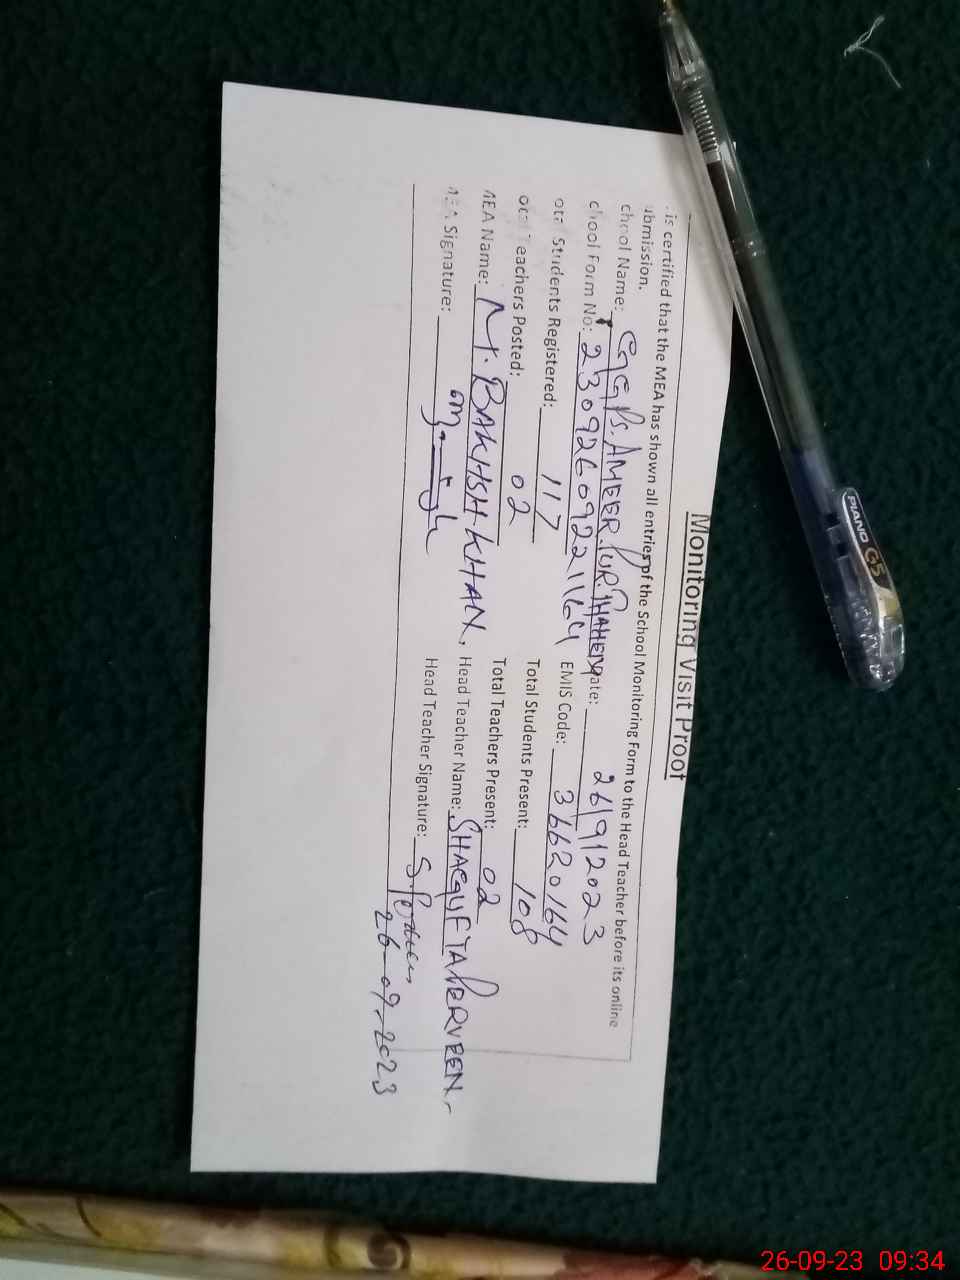 Monitoring Visit Proof
is certified that the MEA has shown all entries of the School Monitoring Form to the Head Teacher before its online
ubmission.
chool Name: GGPS. AMEER PUR. Date: 26/9/2023
chool Form No: 23092609221164 EMIS Code: 36620164
otal Students Registered: 117 Total Students Present: 108
otal Teachers Posted: 02 Total Teachers Present: 02
MEA Name: M. BAKHSH KHAN, Head Teacher Name: SHAGUFTA PERVEEN,
MEA Signature: Head Teacher Signature: S. Perveen
26-09-2023
PIANO G5
26-09-23 09:34